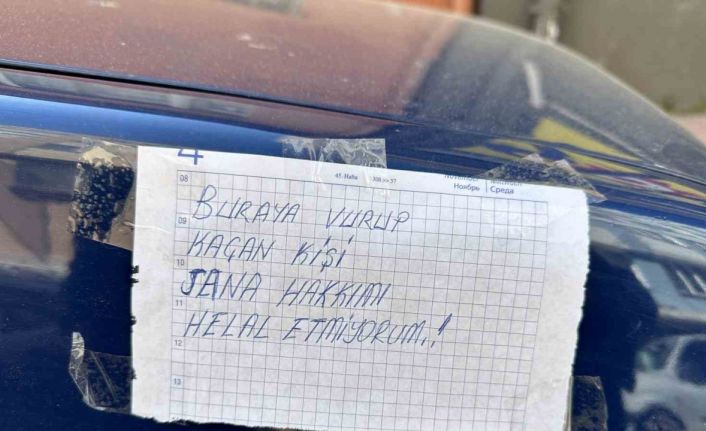 4
45. Hafta 308 >> 57
Ноябрь Среда
08
BURAYA VURUP
09
KAÇAN KİŞİ
10
SANA HAKKIMI
11
HELAL ETMİYORUM.!
12
13